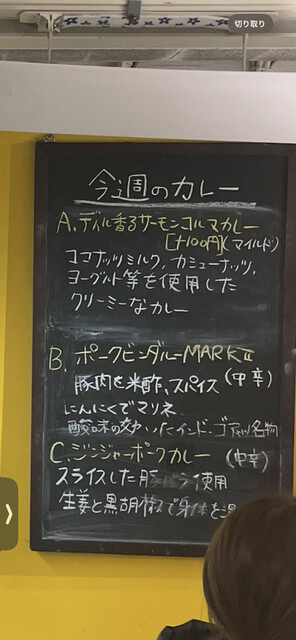 切り取り
今週のカレー
A. ディル香るサーモンコルマカレー
[+100円](マイルド)
ココナッツミルク、カシューナッツ、
ヨーグルト等を使用した
クリーミーなカレー
B. ポークビンダルーMARKⅡ
(中辛)
豚肉を米酢、スパイス
にんにくでマリネ
酸味の効いたインド・ゴアの名物
C. ジンジャーポークカレー
(中辛)
スライスした豚バラ使用
生姜と黒胡椒で身体を